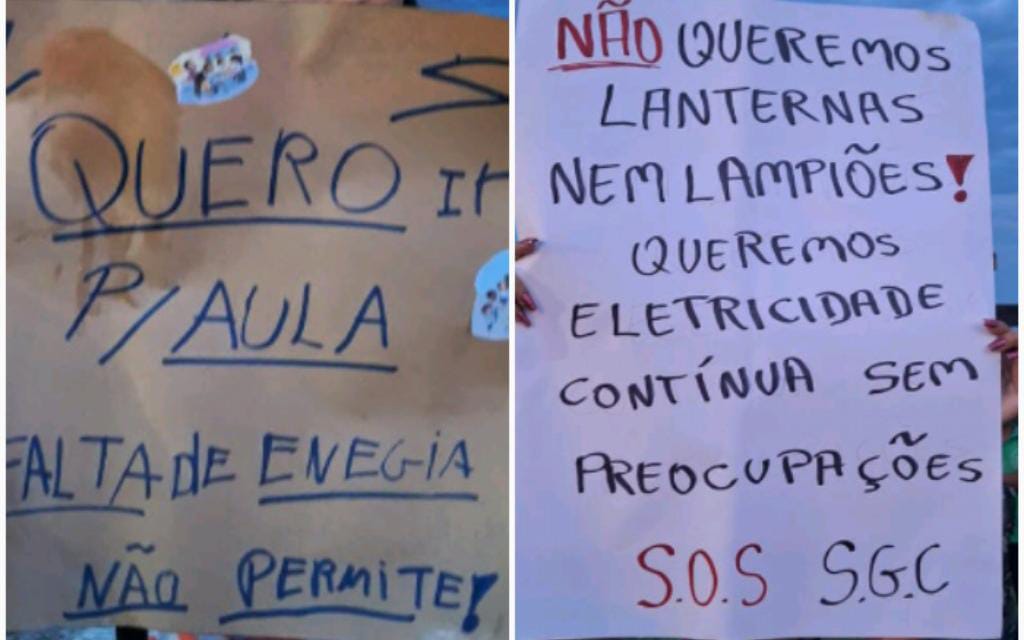 QUERO Ir
P/AULA
FALTA DE ENEGIA
NÃO PERMITE!
NÃO QUEREMOS
LANTERNAS
NEM LAMPIÕES!
QUEREMOS
ELETRICIDADE
CONTÍNUA SEM
PREOCUPAÇÕES
S.O.S S.G.C